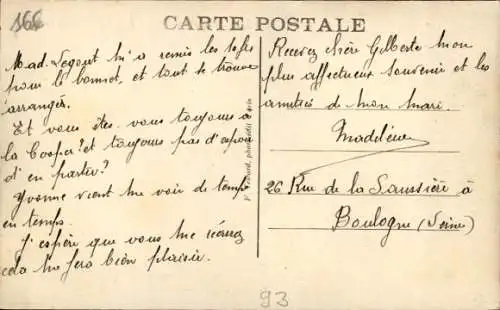 166
CARTE POSTALE
Mad. Legout m'a remis les
pour le bonnet, et tout se trouve
arrangé.
Et vous êtes-vous toujours à
la Coopé? et toujours pas d'espoir
d'en partir?
Yvonne vient me voir de temps
en temps.
J'espère que vous me
cela me fera bien plaisir.
Recevez chère Gilberte mon
plus affectueux souvenir et les
amitiés de mon mari.
Madeleine
26 Rue de la Saussière à
Boulogne (Seine)
93